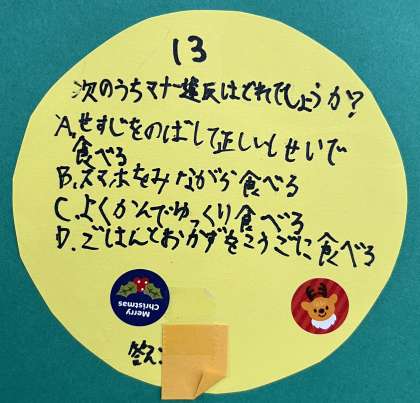 13
次のうちマナー違反はどれでしょうか?
A.せすじをのばして正しいしせいで
食べる
B.スマホをみながら食べる
C.よくかんでゆっくり食べる
D.ごはんとおかずをこうごに食べる
Merry
Christmas
答え: